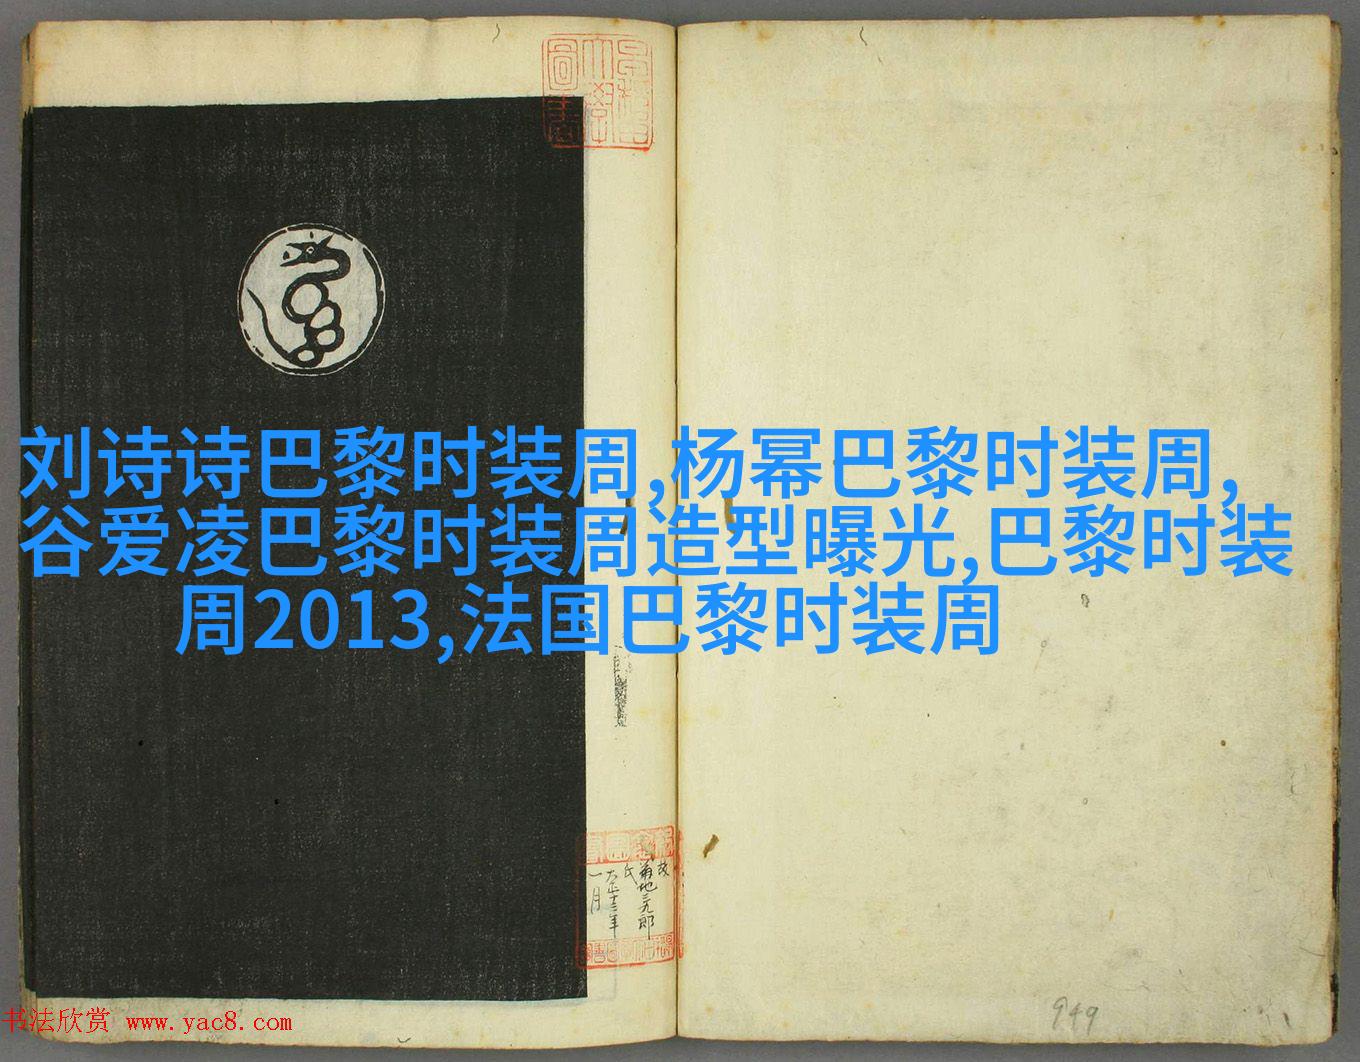 刘诗诗巴黎时装周,杨幂巴黎时装周,
谷爱凌巴黎时装周造型曝光,巴黎时装
周2013,法国巴黎时装周
故
菊地三九郎
氏
大正十三年
一月
949
书法欣赏 www.yac8.com